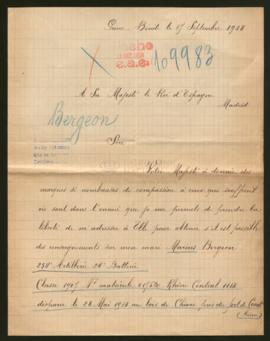 Benoit le 17 Septembre 1918
109983
A Sa Majesté le Roi d'Espagne
Madrid
Bergeon
Sire
Votre Majesté a donné des
marques si nombreuses de compassion à ceux qui souffrent
ou sont dans l'ennui que je me permets de prendre la
liberté de m'adresser à Elle pour obtenir s'il est possible
des renseignements sur mon mari Marius Bergeon
Artillerie 26e Batterie
Classe 1907 N° matricule Rhône Central
disparu le 28 Mai 1918 au bois de près du fort de